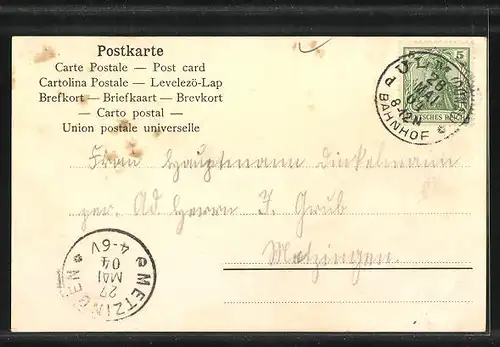 Postkarte
Carte Postale — Post card
Cartolina Postale — Levelezö-Lap
Brefkort — Briefkaart — Brevkort
— Carto postal —
Union postale universelle
5
5
DEUTSCHES REICH
ULM
26
MAI
8-12N
BAHNHOF
Frau Hauptmann Dinkelmann
per. Ad Herrn J. Grub
Metzingen.
METZINGEN
27
MAI
04
4-6V